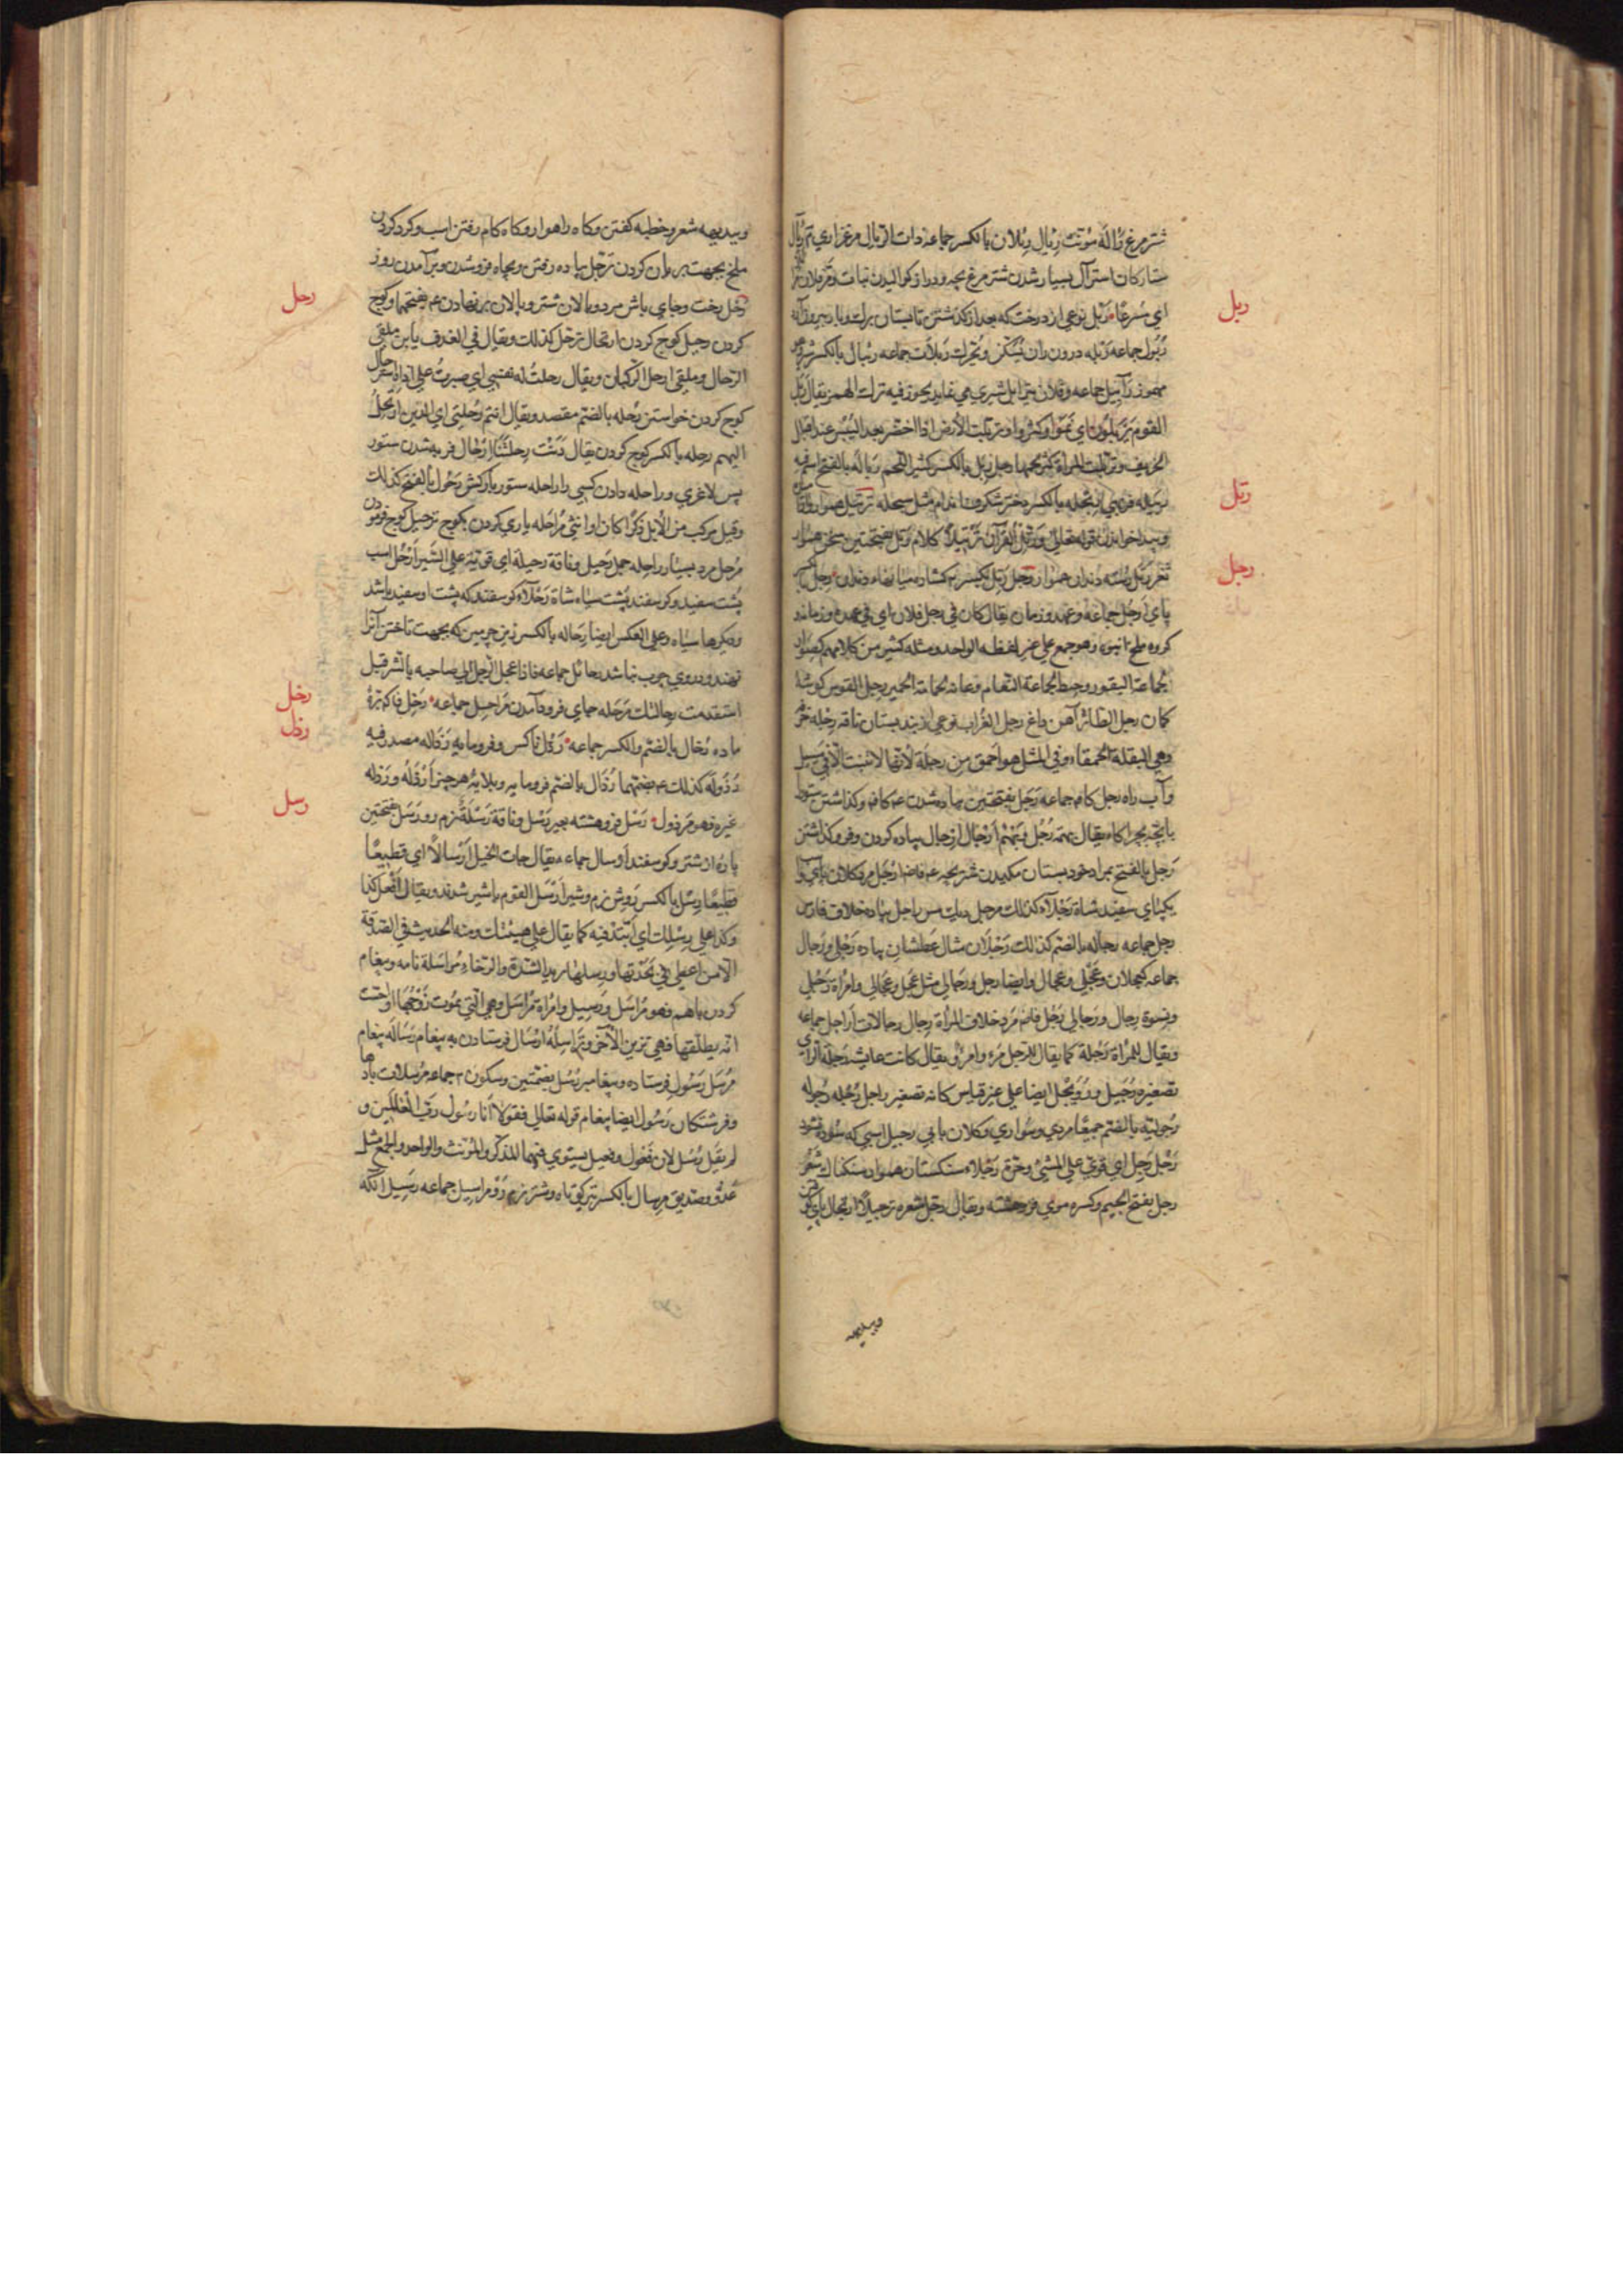 شترمرغ رَأله مؤنث رِئال رئلان بالکسر جماعه ذات الرئال مرغزاري
ستارکان استرآل بسیار شدن شترمرغ بچه و دراز کوالیدن نبات
ربل
اي مسرعًا ربل نوعي از درخت که بعد از کذشتن تابستان برك
رُبُول جماعه رَبْلَه درون ران يُسَكّن ويُحَرّك رَبَلات جماعه رئبال بالکسر شیر
مهموز رآبیل جماعه وفلان یترابل شیري مي نماید یجوز فیه ترك الهمز یقال
القوم يَرْبُلُون اي نَمَوا وکثروا وتربلت الأرض اذا اخضر بعد الیبس عند اقبال
الخریف وتربلت المراة کثر لحمها رجل رَبِل بالکسر کثیر اللحم رَبالَه بالفتح اسم فیه
رتل
رَبیله فربهي رِبَحْلَه بالکسر دختر شکرف اندام مثل سبحله ترتیل هموار
وپیدا خواندن قوله تعالی وَرَتِّلِ القُرآنَ تَرْتِيلًا کلام رَتَل بفتحتین سخن هموار
رجل
ثغر رَتَل رسته دندان هموار رجل رَتِل بکسر ت کشاده میانهاء دندان رِجل بالکسر
پاي اَرجُل جماعه وعهد وزمان یقال کان في رجل فلان اي في عهده وزمانه و
کروه ملخ تانیث وهو جمع علي غیر لفظه الواحد ومثله کثیر من کلامهم کصوار
لجماعة البقر وخیط لجماعة النعام وعانه لجماعة الحمیر رجل القوس کوشۀ
کمان رجل الطائر آهن داغ رجل الغراب نوعي از بند بستان ناقه رِجله خرفه
وهي البقلة الحمقاء وفي المثل هو احمق من رجلة لأنها لا تنبت الّا في مسیل
وآب راه رجل کافر جماعه رَجَل بفتحتین پیاده شدن ع کافر وکذاشتن ستور
بابچه بچراکاه یقال بهمه رُجُل وبَهْم اَرْجال ارجال پیاده کردن وفرو کذاشتن
رَجل بالفتح بمراد خود بستان مکیدن شتربچه ع فاض اَرْجُل مرد کلان پاي و
یکپاي سفید شاة رَجْلاء کذلك مرجل دیك مس راجل پیاده خلاف فارس
رجل جماعه رجّاله بالضم کذلك رَجْلان مثال عَطشان پیاده رَجْلي ورجال
جماعه کعجلان وعَجْلي وعجال وایضا رجل ورجالي مثل عجل وعجالي وامراة رَجْلي
ونسوة رجال ورَجالي رَجُل فاض مرد خلاف المرأة رجال رجالات اراجل جماعه
ویقال للمرأة رَجُلة کما یقال للرجل مرء وامرؤ ویقال کانت عایشه رَجُلة الراي
تصغیره رُجَیل ورُوَیجل ایضا علي غیر قیاس کانه تصغیر راجل رُجْله رُجولَه
رُجولیّه بالضم جمیعًا مردي وسواري وکلان پایي رجیل اسبي که سوده نشود
رَجُل رَجِل اي قوي علي المشي وحَرّة رَجْلاء سنکستان هموار سنکناك شعر
رجل بفتح الجیم وکسره موي فروهشته ویقال رجّل شعره ترجیلًا ارتجال پاي
وبدیهه
وبدیهه شعر وخطبه کفتن وکاه راهوار وکاه کام رفتن اسب وکرد کردن
ملخ بجهت بریان کردن ترَجّل پیاده رفتن وبچاه فروشدن وبرآمدن روز
رحل
رَحْل رخت وجاي باش مرد وپالان شتر وپالان برنهادن ع بفتحهما وکوچ
کردن رحیل کوچ کردن ارتحال ترحّل کذلك ویقال في القذف یا بن ملقي
الرّحال وملقي ارحل الرکبان ویقال رحلتُ له نفسي اي صبرتُ علي اذاه استرحال
کوچ کردن خواستن رُحله بالضم مقصد ویقال انتم رُحلتي اي الذین ارتحل
الیهم رِحله بالکسر کوچ کردن یقال دَنَت رِحلتنا ارحال فربه شدن ستور
پس لاغري وراحله دادن کسي را راحله ستور بارکش رَحُول بالفتح کذلك
وقیل مرکب من الابل ذکرًا کان او انثي مُراحَله یاري کردن بکوچ ترحیل کوچ فرمودن
مُرحِل مرد بسیار راحله جمل رَحیل وناقة رحیلة اي قویّة علي السیر اَرْحَل اسب
پُشت سفید وکوسفند پُشت سیاه شاة رَحْلاء کوسفند که پشت او سفید باشد
ودیکرها سیاه وعلي العکس ایضا رِحاله بالکسر زین چرمین که بجهت تاختن آنرا
نهند ودروي چوب نباشد رحائل جماعه فاذا عجل الرجل الي صاحبه بالشر قیل
رخل
استقدمت رِحالتك مَرحَله جماي فرودآمدن مَراحِل جماعه رَخِل فاکره برۀ
رذل
ماده رُخال بالضم والکسر جماعه رَذل ناکس وفرومایه رَذاله مصدر فیه
رُذُولَه کذلك ع بضمهما رُذال بالضم فرومایه وبلایۀ هر چیز اَرذَلَهُ ورَذَلَه
رسل
غیره فهو مَرذول رَسْل فروهشته بعیر رَسْل وناقة رَسْلَة نرم رو رَسَل بفتحتین
پارۀ از شتر وکوسفند اَرسال جماعه یقال جاءت الخیل اَرْسالًا اي قطیعًا
قطیعًا رِسْل بالکسر رَوِش نرم وشیر اَرْسَل القوم باشیر شوند ویقال افعل کذا
وکذا علي رِسْلك اي اتّئد فیه کما یقال علي هینتك ومنه الحدیث في الصدقة
الّا من اعطي في نَجْدتها ورِسلها یرید الشدّة والرخاء مُراسَلة نامه وپیغام
کردن باهم فهو مُراسل ورَسیل وامراة مُراسل وهي التي یموت زَوْجُها او احسّت
انّه یطلّقها فهي تزین لآخر وتراسِلُهُ اِرسال فرستادن به پیغام رِساله پیغام
مُرسَل رَسُول فرستاده وپیغامبر رُسُل بضمتین وسکون جماعه مُرسلات بادها
وفرشتکان رَسُول ایضا پیغام قوله تعالي فقولا اَنا رسُول ربّ العالمین و
لم یَقُل رُسُل لان فَعُول وفعیل یستوي فیهما المذکر والمؤنث والواحد والجمع مثل
عَدُوّ وصَدیق مِرسال بالکسر تیر کوتاه وشتر نرم رَوْ مراسیل جماعه رسیل آنکه